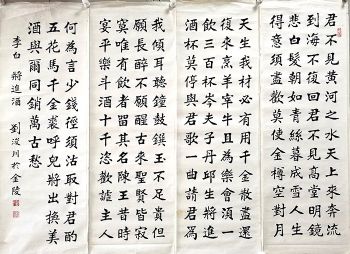 君不見黃河之水天上來奔流
到海不復回君不見高堂明鏡
悲白髮朝如青絲暮成雪人生
得意須盡歡莫使金樽空對月
天生我材必有用千金散盡還
復來烹羊宰牛且為樂會須一
飲三百杯岑夫子丹丘生將進
酒杯莫停與君歌一曲請君為
我傾耳聽鐘鼓饌玉不足貴但
願長醉不願醒古來聖賢皆寂
寞唯有飲者留其名陳王昔時
宴平樂斗酒十千恣歡謔主人
何為言少錢徑須沽取對君酌
五花馬千金裘呼兒將出換美
酒與爾同銷萬古愁
李白 將進酒 劉川於金陵